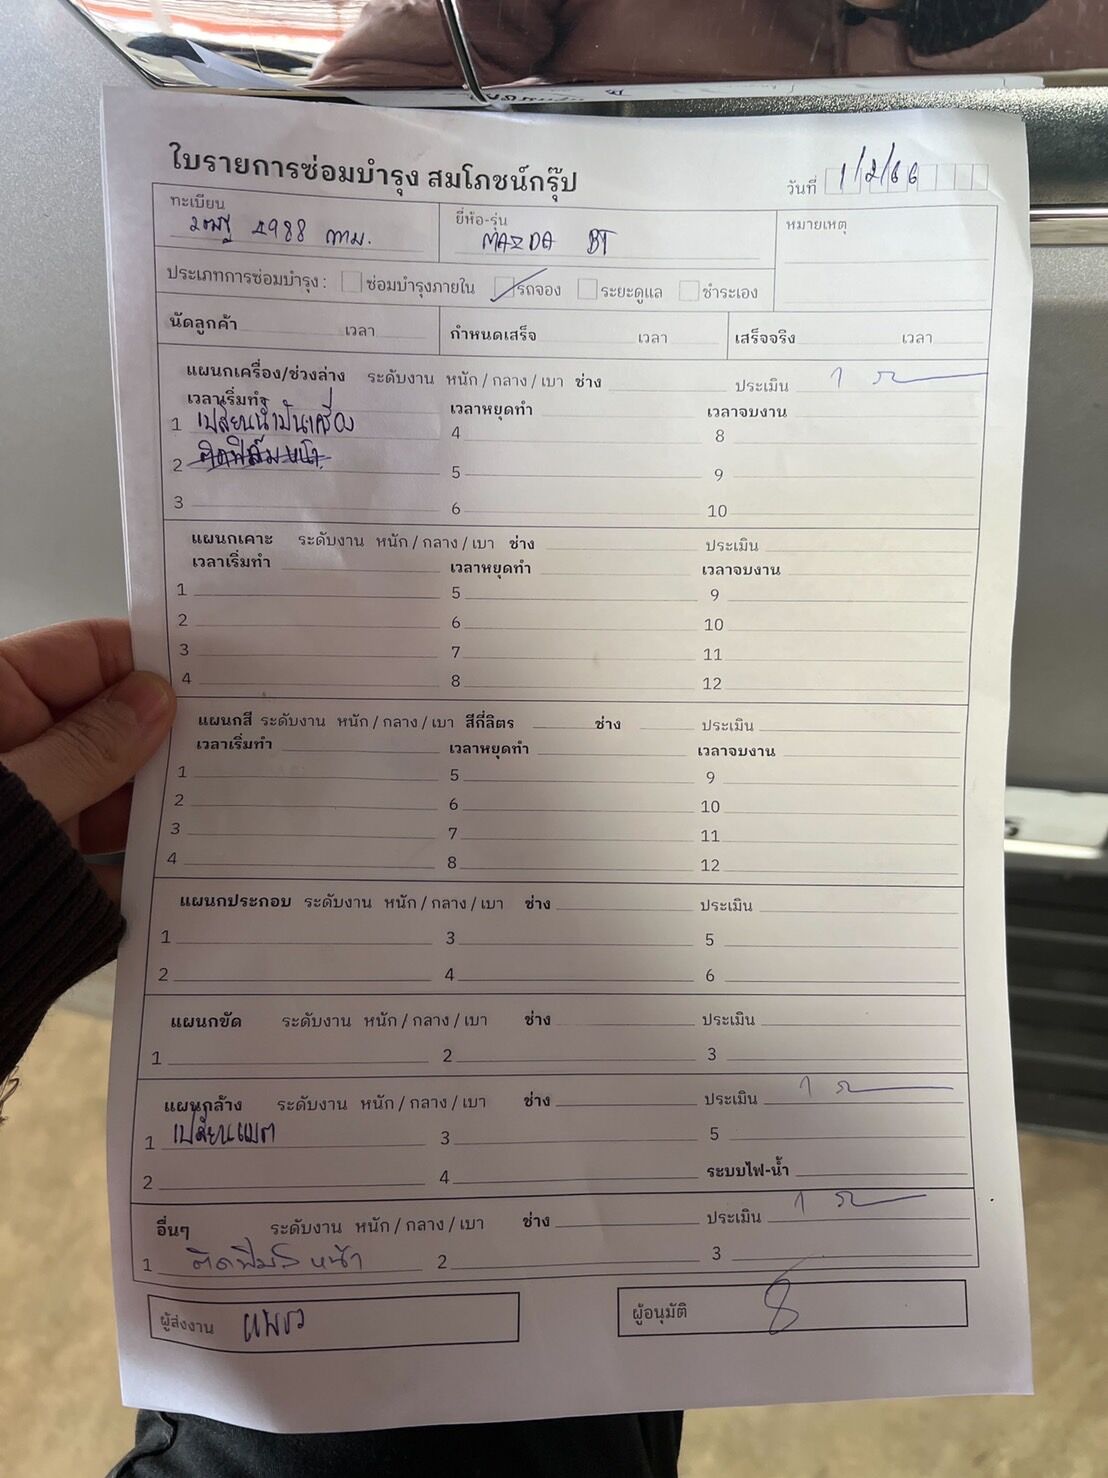 ใบรายการซ่อมบำรุง สมโภชน์กรุ๊ป
วันที่ 1/2/66
ทะเบียน 4988 กทม.
ยี่ห้อ-รุ่น MAZDA BT
หมายเหตุ
ประเภทการซ่อมบำรุง : ซ่อมบำรุงภายใน รถจอง ระยะดูแล ชำระเอง
นัดลูกค้า เวลา กำหนดเสร็จ เวลา เสร็จจริง เวลา
แผนกเครื่อง/ช่วงล่าง ระดับงาน หนัก / กลาง / เบา ช่าง ประเมิน 1
เวลาเริ่มทำ เวลาหยุดทำ เวลาจบงาน
1 เปลี่ยนน้ำมันเครื่อง 4 8
2 ติดฟิล์มหน้า 5 9
3 6 10
แผนกเคาะ ระดับงาน หนัก / กลาง / เบา ช่าง ประเมิน
เวลาเริ่มทำ เวลาหยุดทำ เวลาจบงาน
1 5 9
2 6 10
3 7 11
4 8 12
แผนกสี ระดับงาน หนัก / กลาง / เบา สีกี่ลิตร ช่าง ประเมิน
เวลาเริ่มทำ เวลาหยุดทำ เวลาจบงาน
1 5 9
2 6 10
3 7 11
4 8 12
แผนกประกอบ ระดับงาน หนัก / กลาง / เบา ช่าง ประเมิน
1 3 5
2 4 6
แผนกขัด ระดับงาน หนัก / กลาง / เบา ช่าง ประเมิน
1 2 3
แผนกล้าง ระดับงาน หนัก / กลาง / เบา ช่าง ประเมิน 1
1 เปลี่ยนแบต 3 5
2 4 ระบบไฟ-น้ำ
อื่นๆ ระดับงาน หนัก / กลาง / เบา ช่าง ประเมิน 1
1 ติดฟิมล์ หน้า 2 3
ผู้ส่งงาน
ผู้อนุมัติ